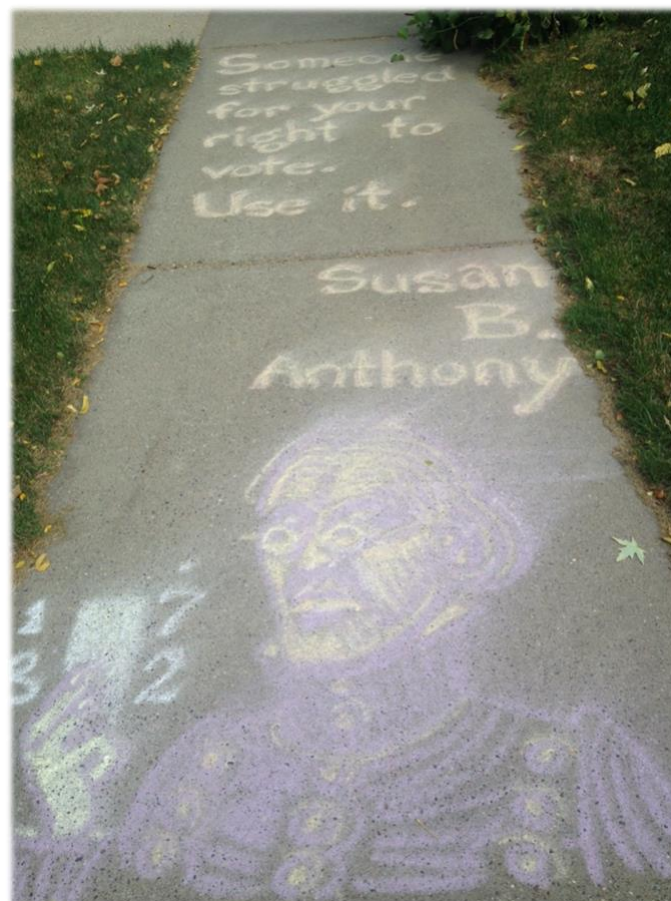 Someone
struggled
for your
right to
vote.
Use it.
Susan
B.
Anthony
1 7
3 2